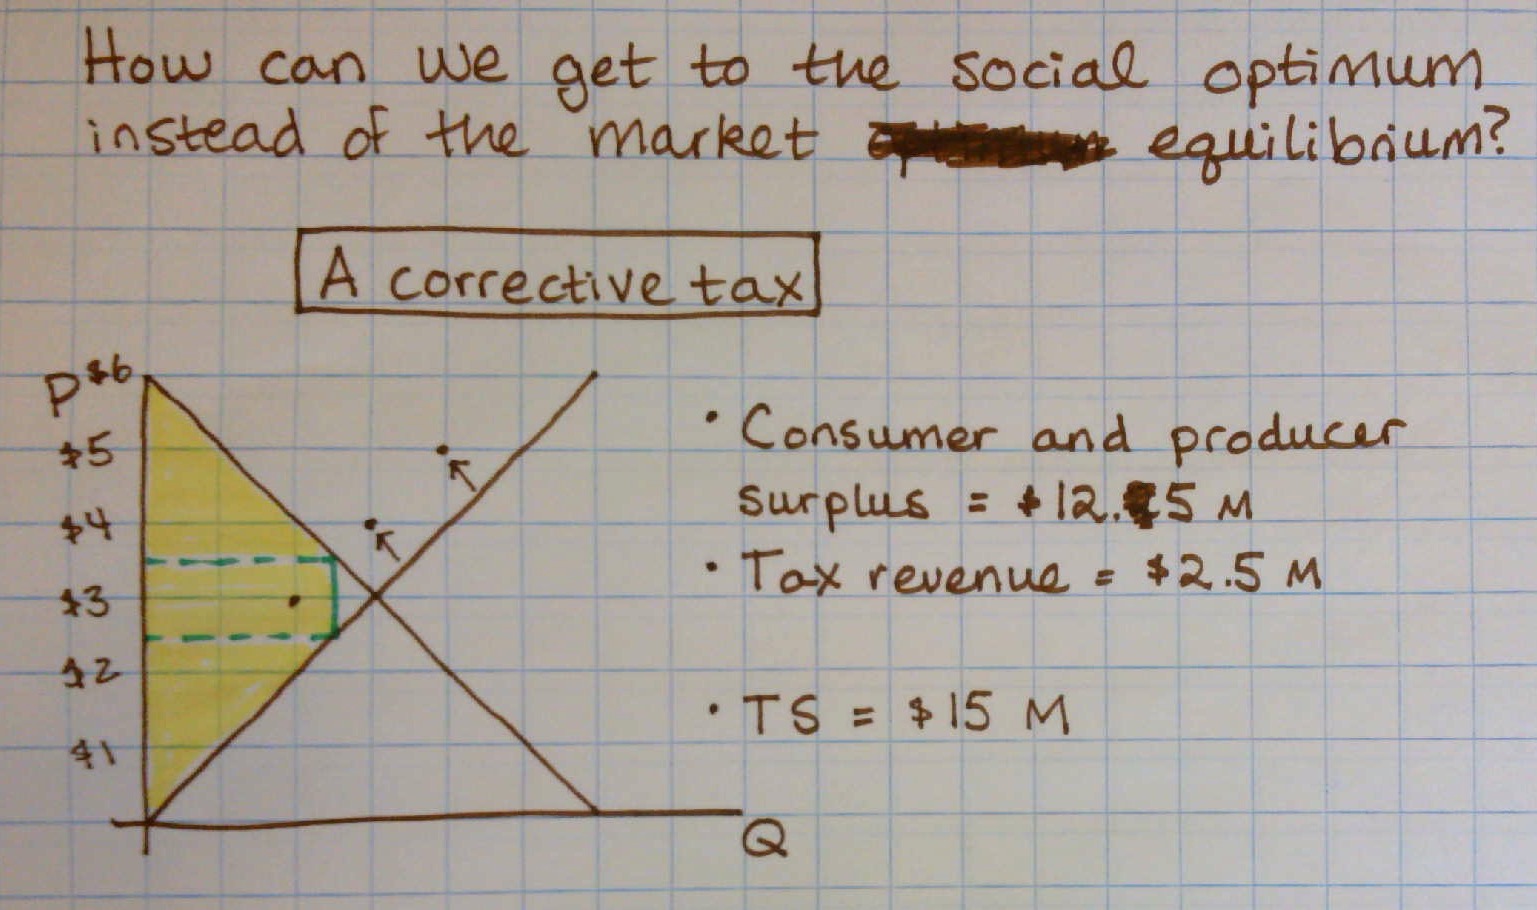 How can we get to the social optimum
instead of the market equilibrium?
A corrective tax
P $6
$5
$4
$3
$2
$1
Q
• Consumer and producer
surplus = $12.5 M
• Tax revenue = $2.5 M
• TS = $15 M